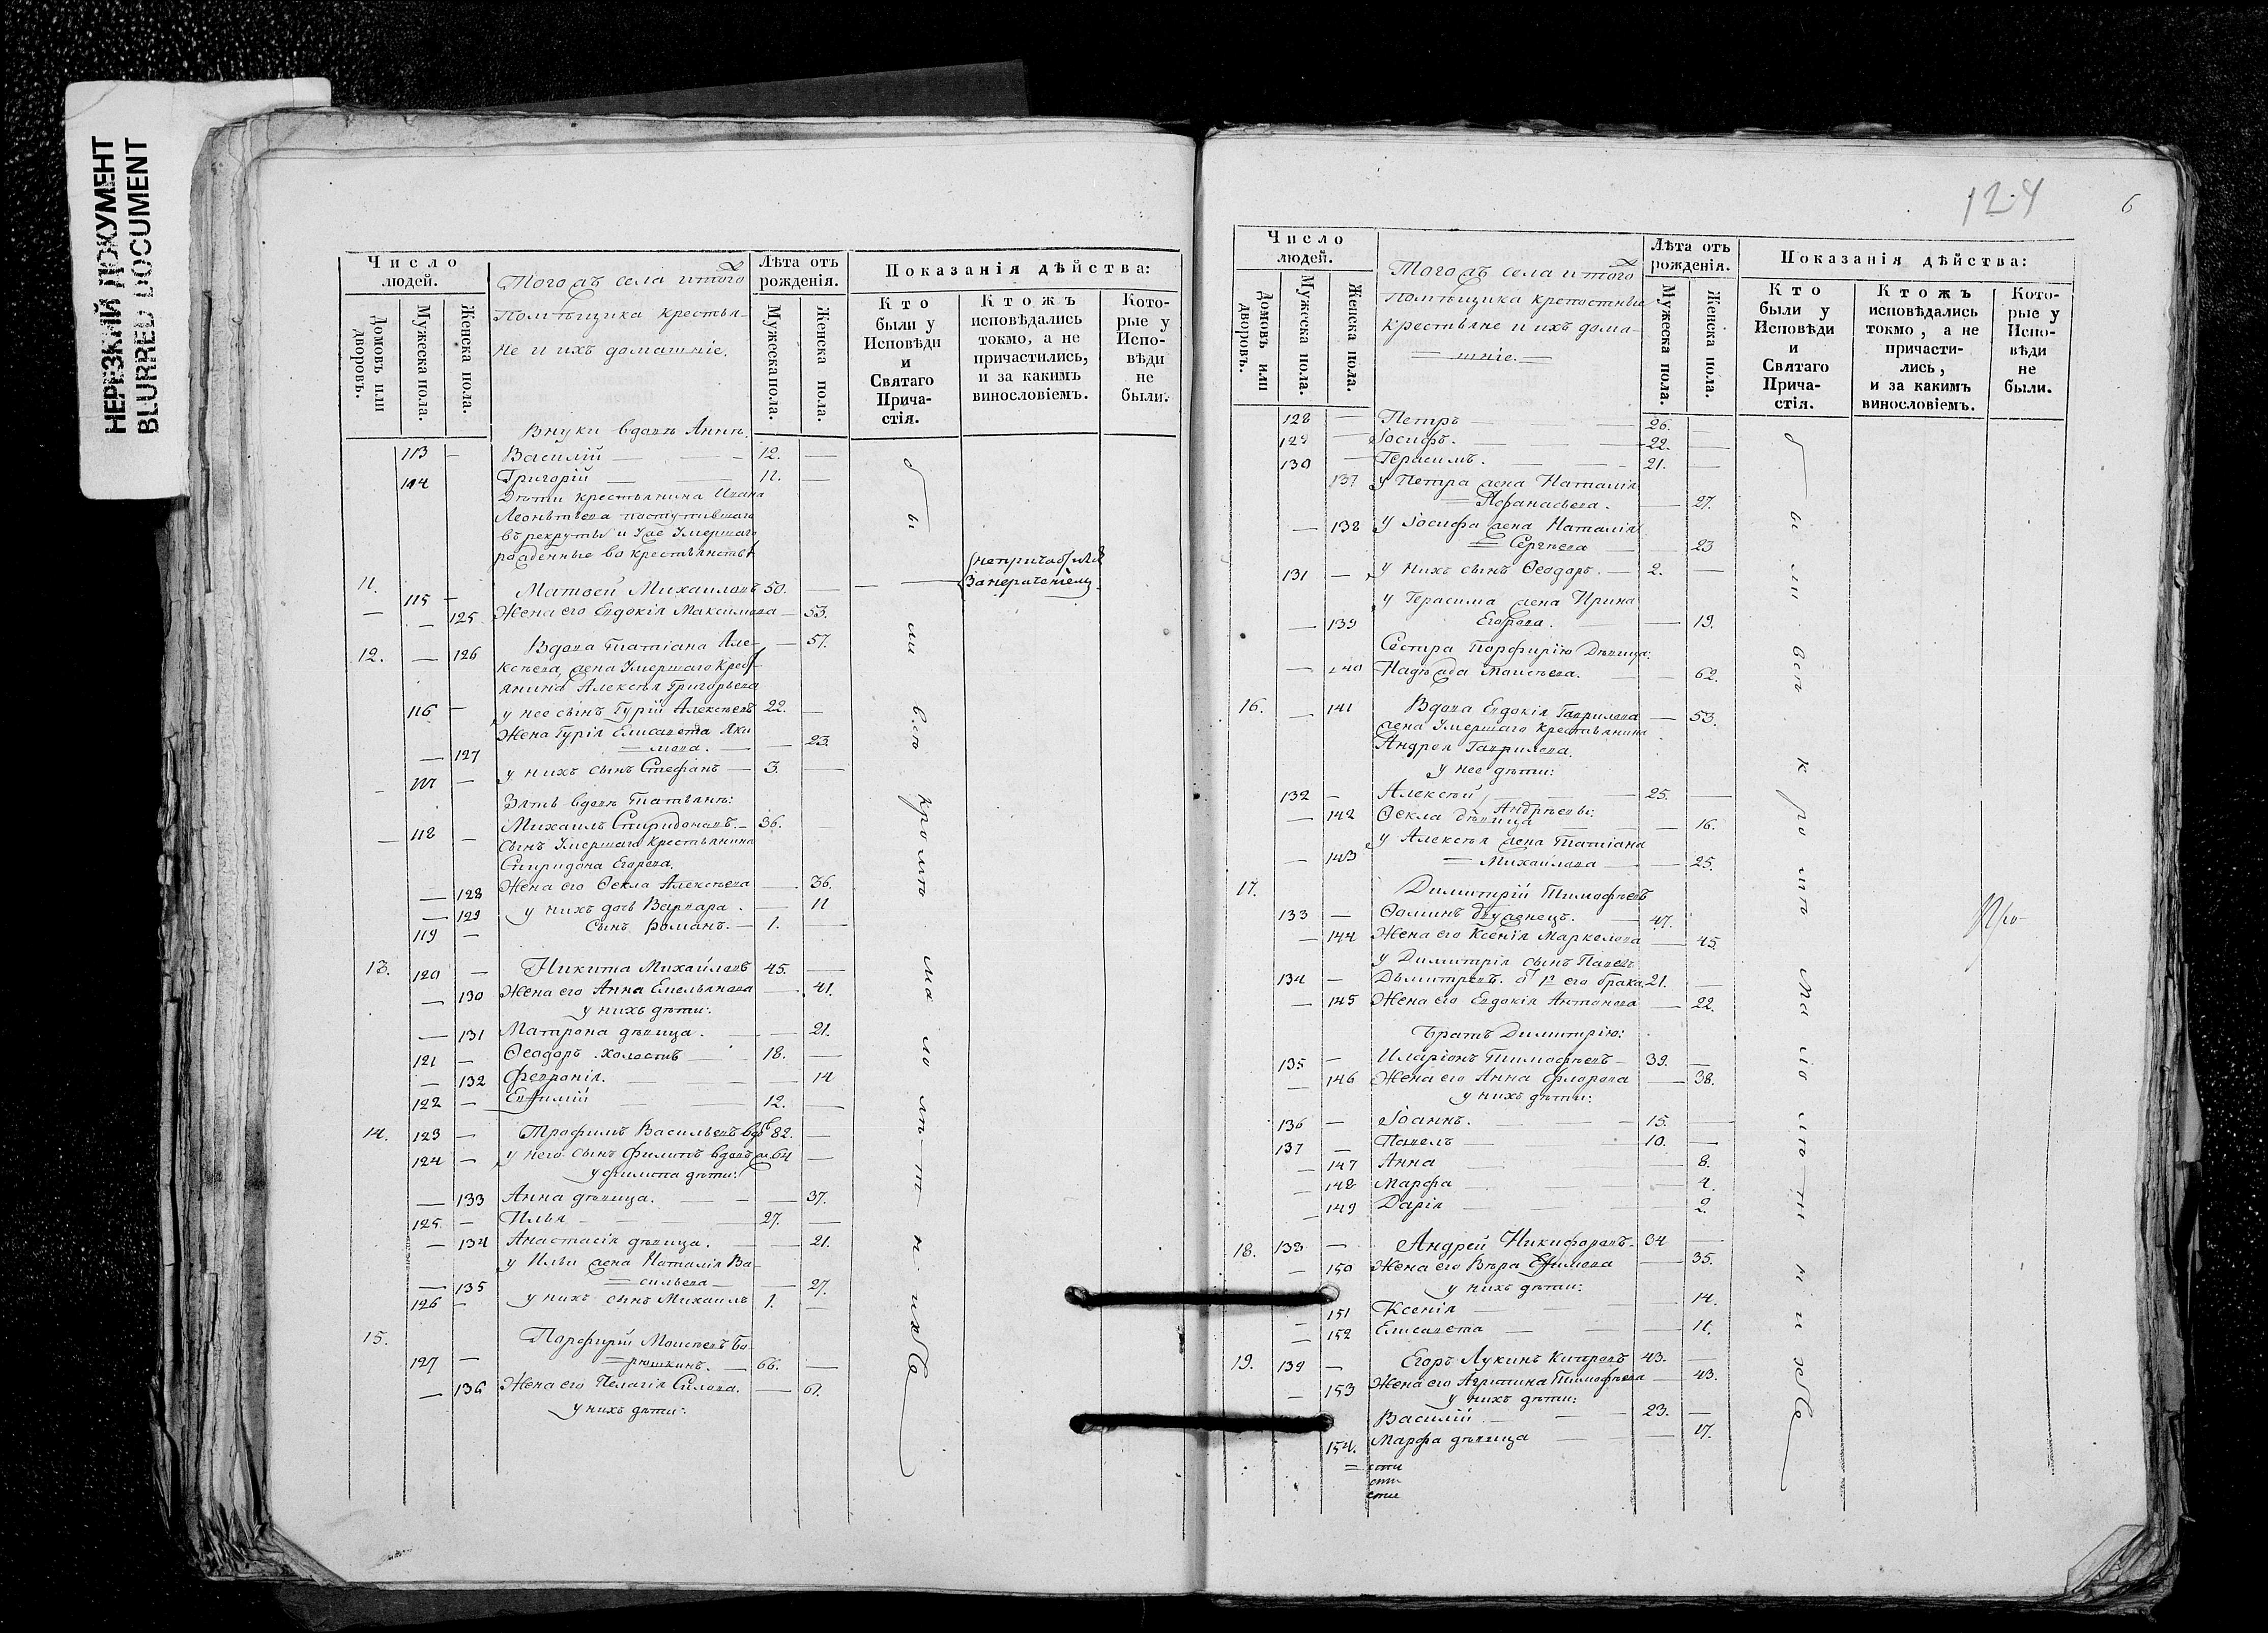 НЕРЕЗКИЙ ДОКУМЕНТ
BLURRED DOCUMENT
Число людей.
Домовъ или дворовъ.
Мужеска пола.
Женска пола.
Тогожъ села и того
Помѣщика крестья-
не и ихъ домашніе.
Лѣта отъ рожденія.
Мужеска пола.
Женска пола.
Показанія дѣйства:
Кто были у Исповѣди и Святаго Прича-стія.
Ктожъ исповѣдались токмо, а не причастились, и за какимъ винословіемъ.
Кото-рые у Испо-вѣди не были.
Внуки вдовы Анны
113 — Василій — 12. —
114 Григорій — 11. —
Дѣти крестьянина Ивана
Леонтьева поступившаго
въ рекруты и уже умершаго
рожденные въ крестьянствѣ
11. 115 — Матѳей Михаиловъ 50. —
— — 125 Жена его Евдокія Максимова — 53.
12. — 126 Вдова Татіана Але- — 57.
ксѣева, жена умершаго крест-
янина Алексѣя Григорьева
116 — у нее сынъ Гурій Алексѣевъ 22. —
Жена Гурія Елисавета Яки
— 127 =мова. — — 23.
117 — у нихъ сынъ Стефанъ — 3. —
Зять вдовы Татьяны:
118 — Михаилъ Спиридоновъ. — 36. —
сынъ умершаго крестьянина
Спиридона Егорова.
— 128 Жена его Ѳекла Алексѣева — 36.
— 129 у нихъ дочь Варвара . — 11
119 — Сынъ Романъ. — 1. —
13. 120 — Никита Михайловъ 45. —
— 130 Жена его Анна Емельянова — 41.
у нихъ дѣти:
— 131 Матрона дѣвица. — — 21.
121 — Ѳеодоръ холостъ — 18. —
— 132 Февронія. — — 14
122 — Евѳимій — 12. —
14. 123 — Трофимъ Васильевъ вдо 82. —
124 — у него сынъ Филипъ вдовъ 64 —
у Филипа дѣти:
— 133 Анна дѣвица. — — 37.
125 — Илья — 27. —
— 134 Анастасія дѣвица. — 21.
у Ильи жена Наталія Ва-
— 135 =сильева — — 27.
126 — у нихъ сынъ Михаилъ 1. —
15. Порфирій Моисѣевъ Бо
127 — =рюшкинъ. — 66. —
— 136 Жена его Пелагія Силова. — 61.
у нихъ дѣти:
были всѣ кромѣ малолѣтнихъ
непричастился
За нераченіемъ
124
6
Число людей.
Домовъ или дворовъ.
Мужеска пола.
Женска пола.
Тогожъ села и того
помѣщика крѣпостные
крестьяне и ихъ дома-
= шніе. =
Лѣта отъ рожденія.
Мужеска пола.
Женска пола.
Показанія дѣйства:
Кто были у Исповѣди и Святаго Прича-стія.
Ктожъ исповѣдались токмо, а не причасти-лись, и за какимъ винословіемъ.
Кото-рые у Испо-вѣди не были.
128 — Петръ — 26. —
129 — Іосифъ. — 22. —
130 — Герасимъ. — 21. —
137 у Петра жена Наталія
= Афанасьева. — 27.
— 138 у Іосифа жена Наталія
= Сергѣева — 23
131 — у нихъ сынъ Ѳеодоръ. — 2. —
у Герасима жена Ирина
— 139 Егорова. — 19.
Сестра Порфирію дѣвица:
— 140 Надѣжда Моисѣева. — 62.
16. — 141 Вдова Евдокія Гаврилова — 53.
жена умершаго крестьянина
Андрея Гаврилова.
у нее дѣти:
132 — Алексѣй — 25. —
Андрѣевы:
— 142 Ѳекла дѣвица — 16.
у Алексѣя жена Татіана
— 143 = Михаилова — — 25.
17. Димитрій Тимофѣевъ
133 — Ѳоминъ двуженецъ. — 47.
— 144 Жена его Ксенія Маркелова — 45.
у Димитрія сынъ Павелъ
134 — Дьмитревъ. отъ 1го его брака. 21. —
— 145 Жена его Евдокія Антонова — 22.
Братъ Димитрію:
135 — Иларіонъ Тимофѣевъ — 39. —
— 146 Жена его Анна Флорова — 38.
у нихъ дѣти:
136 — Іоаннъ. — 15. —
137 — Павелъ — 10. —
— 147 Анна — 8.
— 148 Марфа — 4.
— 149 Дарія — 2.
18. 138 — Андрей Никифоровъ — 34 —
— 150 Жена его Вѣра Ефимова — 35.
у нихъ дѣти:
— 151 Ксенія — 14.
— 152 Елисавета — 11.
19. 139 — Егоръ Лукинъ 43. —
— 153 Жена его Агрипина Тимофѣева — 43.
у нихъ дѣти:
Василій — 23. —
154. Марфа дѣвица — 17.
были всѣ кромѣ малолѣтнихъ